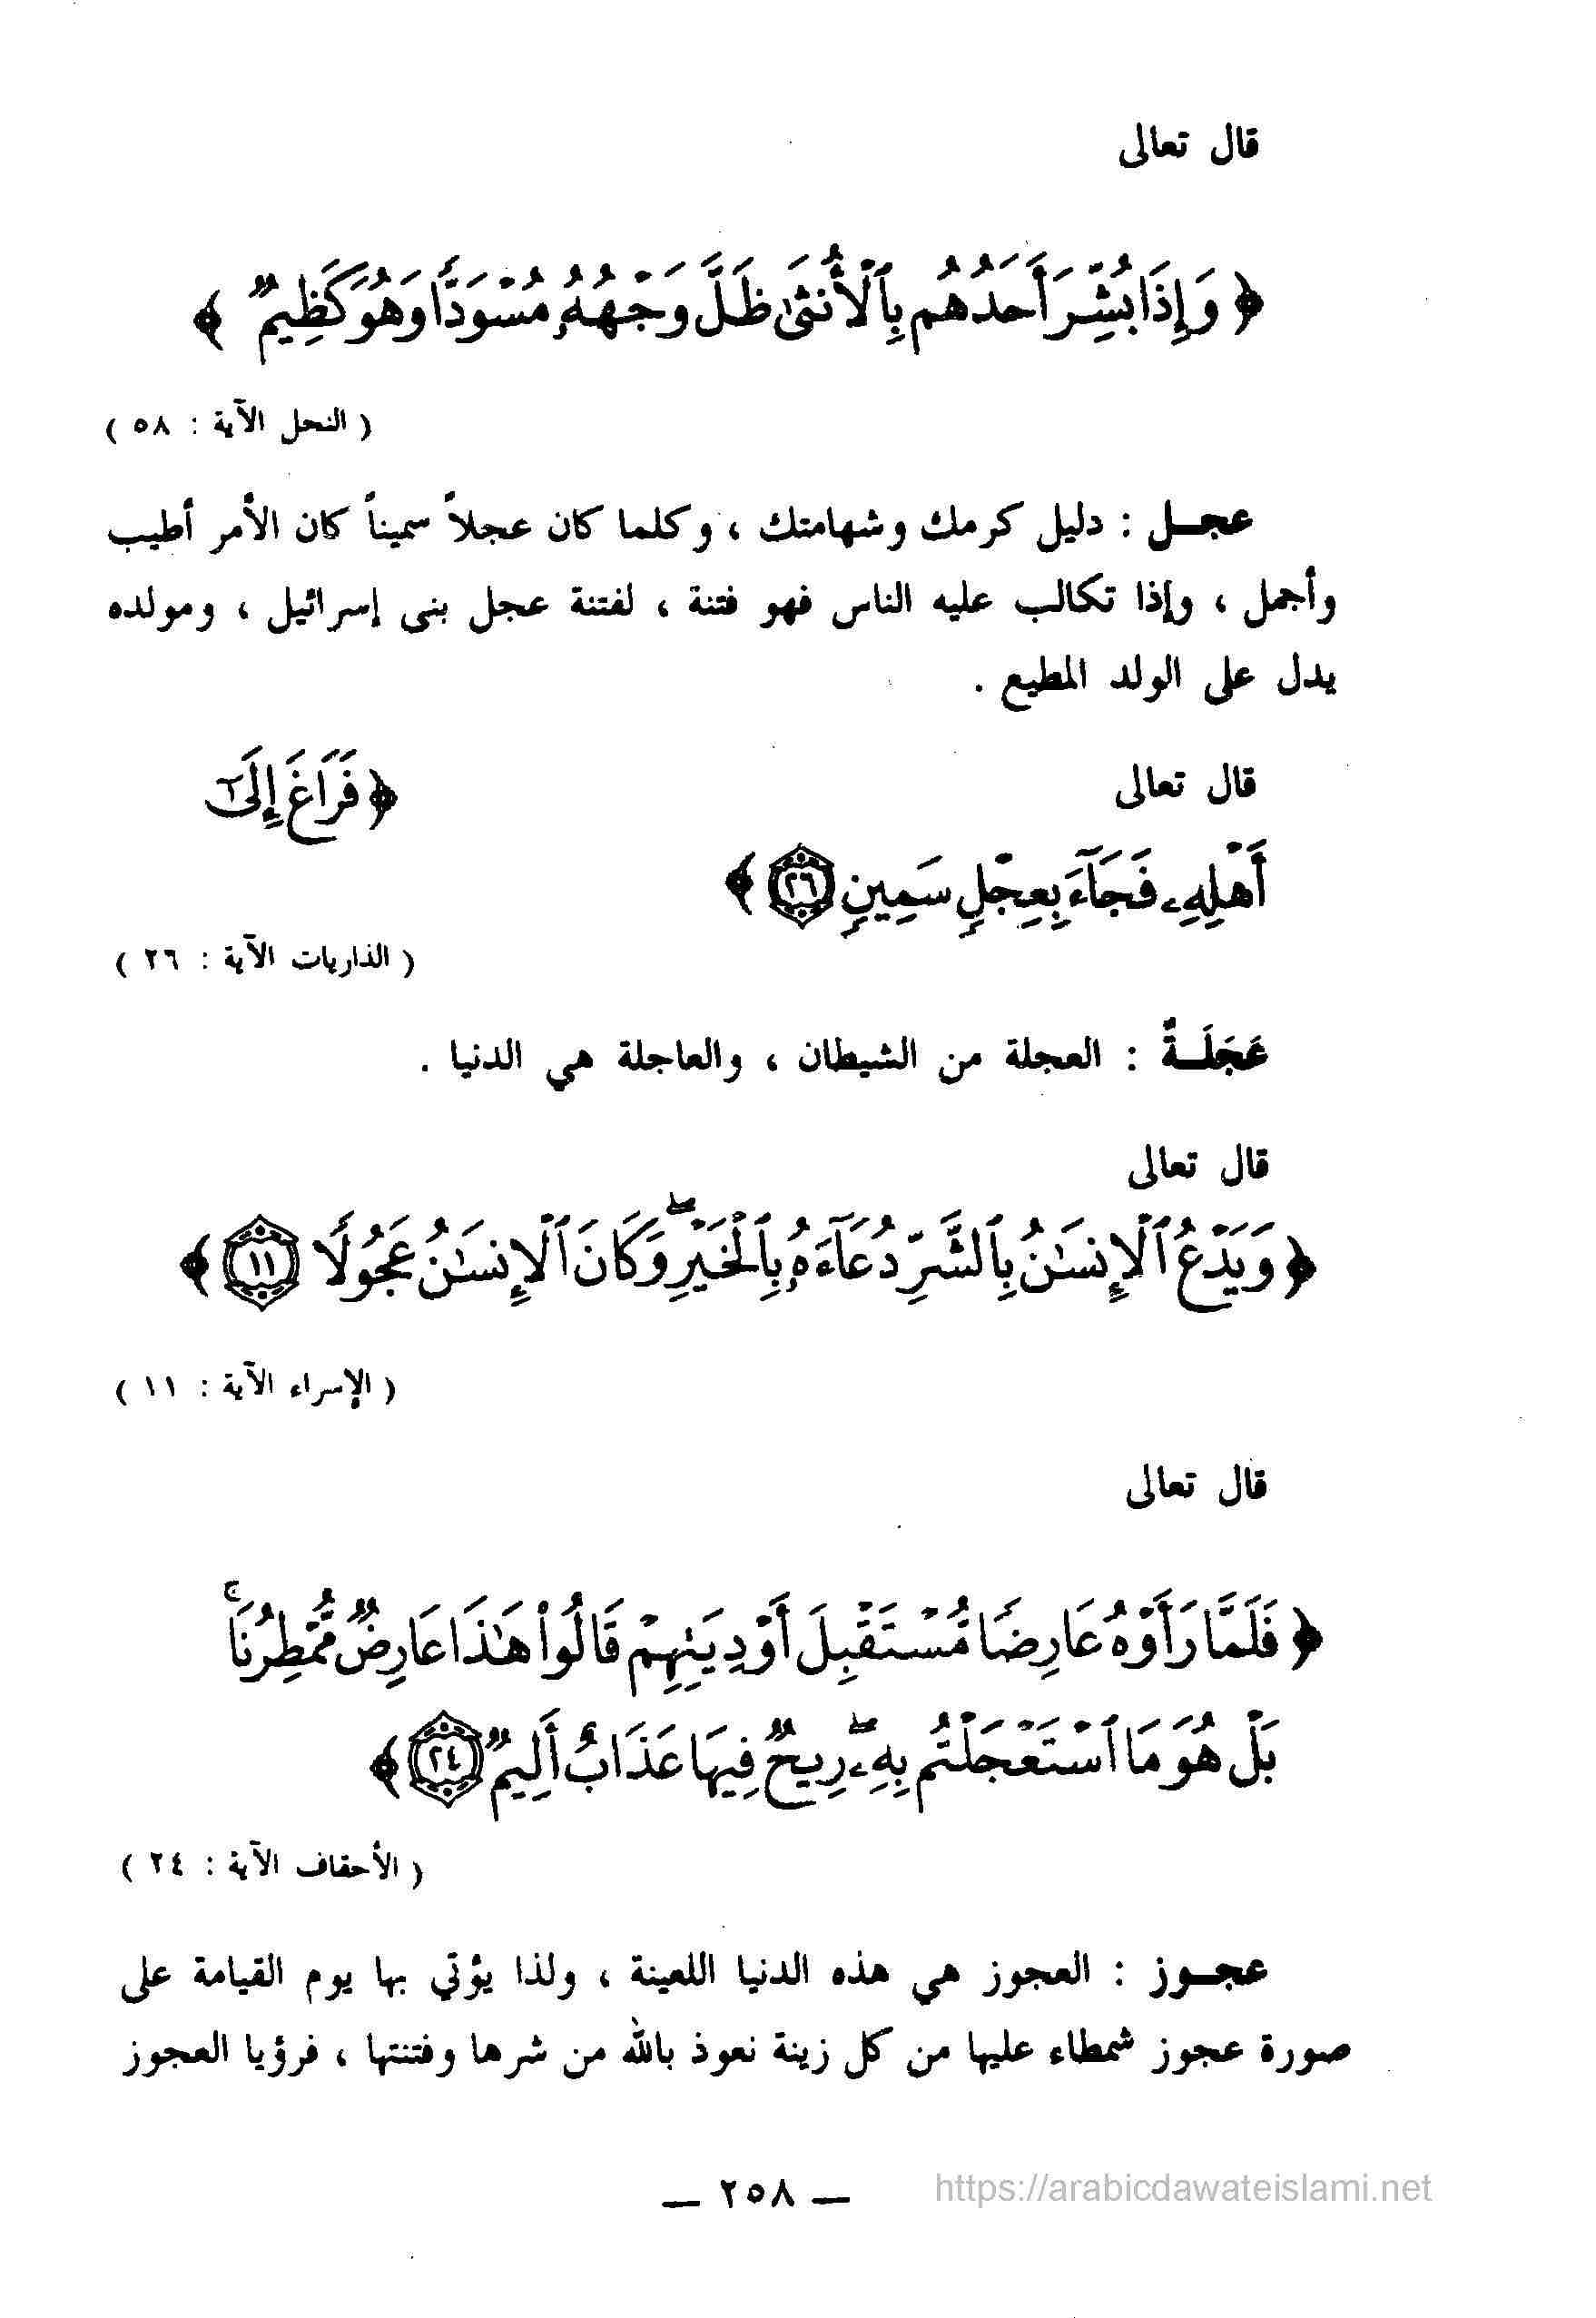 قال تعالى
﴿ وَإِذَا بُشِّرَ أَحَدُهُم بِٱلْأُنثَىٰ ظَلَّ وَجْهُهُۥ مُسْوَدًّا وَهُوَ كَظِيمٌ ﴾
( النحل الآية : ٥٨ )
عجـل : دليل كرمك وشهامتك ، وكلما كان عجلاً سميناً كان الأمر أطيب
وأجمل ، وإذا تكالب عليه الناس فهو فتنة ، لفتنة عجل بنى إسرائيل ، ومولده
يدل على الولد المطيع .
قال تعالى ﴿ فَرَاغَ إِلَىٰٓ
أَهْلِهِۦ فَجَآءَ بِعِجْلٍ سَمِينٍ ٢٦ ﴾
( الذاريات الآية : ٢٦ )
عَجَلَـةٌ : العجلة من الشيطان ، والعاجلة هي الدنيا .
قال تعالى
﴿ وَيَدْعُ ٱلْإِنسَٰنُ بِٱلشَّرِّ دُعَآءَهُۥ بِٱلْخَيْرِ ۖ وَكَانَ ٱلْإِنسَٰنُ عَجُولًا ١١ ﴾
( الإسراء الآية : ١١ )
قال تعالى
﴿ فَلَمَّا رَأَوْهُ عَارِضًا مُّسْتَقْبِلَ أَوْدِيَتِهِمْ قَالُوا۟ هَٰذَا عَارِضٌ مُّمْطِرُنَا ۚ
بَلْ هُوَ مَا ٱسْتَعْجَلْتُم بِهِۦ ۖ رِيحٌ فِيهَا عَذَابٌ أَلِيمٌ ٢٤ ﴾
( الأحقاف الآية : ٢٤ )
عجـوز : العجوز هي هذه الدنيا اللعينة ، ولذا يؤتي بها يوم القيامة على
صورة عجوز شمطاء عليها من كل زينة نعوذ بالله من شرها وفتنتها ، فرؤيا العجوز
— ٢٥٨ —
https://arabicdawateislami.net